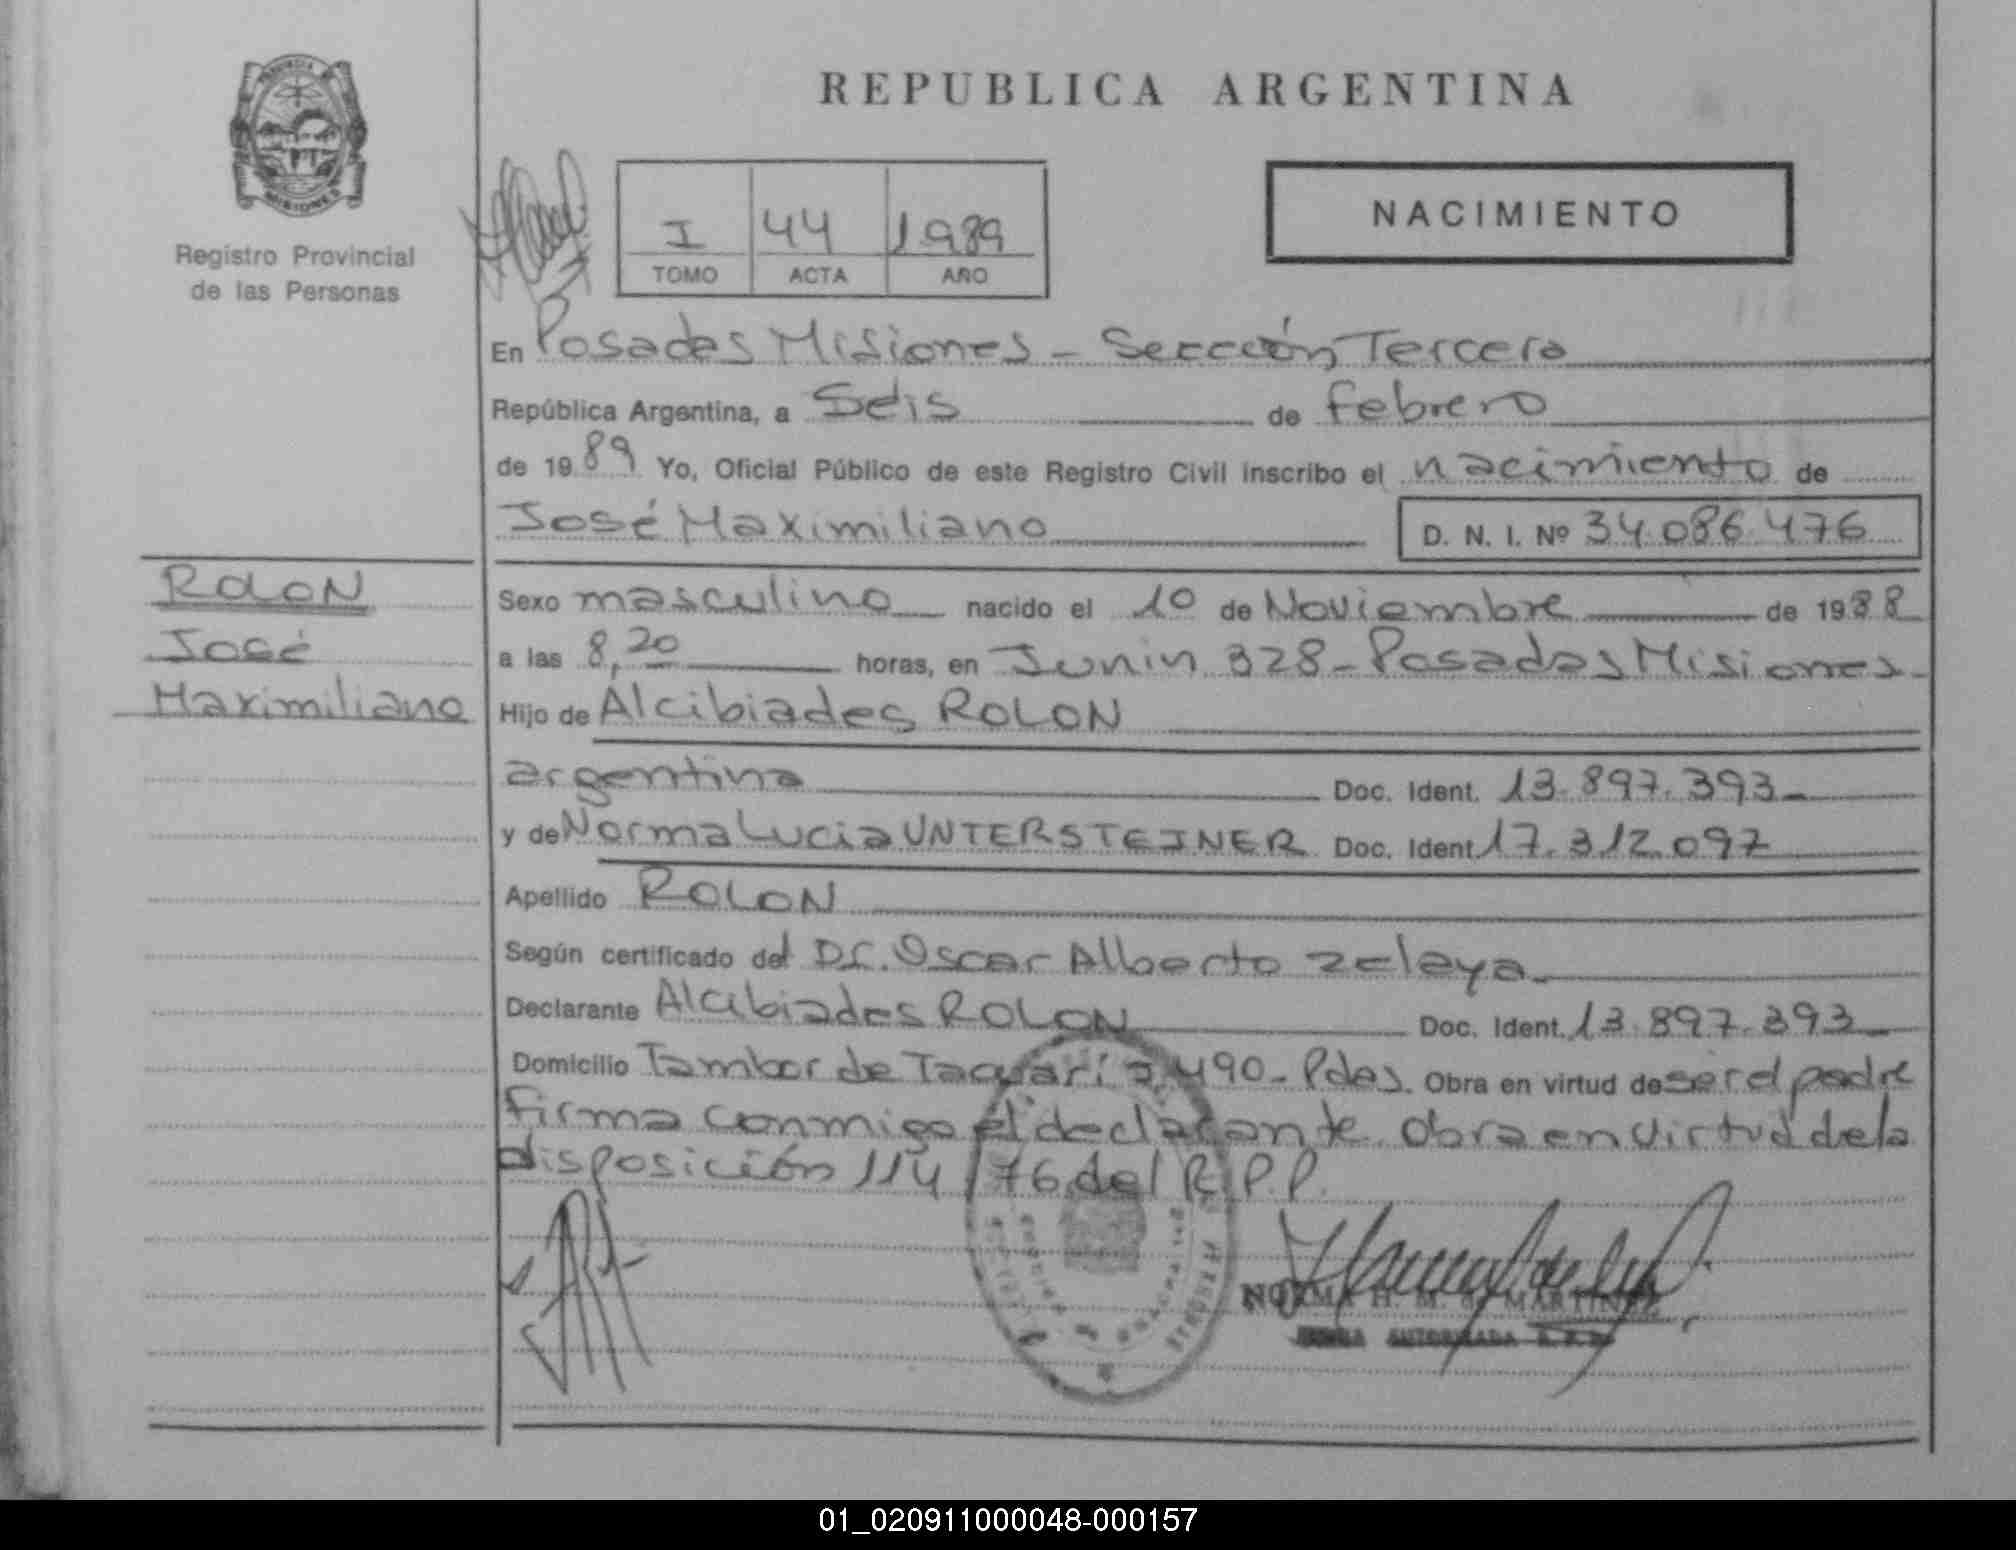 PROVINCIA DE
MISIONES
Registro Provincial
de las Personas
REPUBLICA ARGENTINA
I 44 1989
TOMO ACTA AÑO
NACIMIENTO
En Posadas Misiones - Sección Tercera
República Argentina, a Seis de febrero
de 1989 Yo, Oficial Público de este Registro Civil inscribo el nacimiento de
José Maximiliano D. N. I. Nº 34.086.476
ROLON
José
Maximiliano
Sexo masculino nacido el 10 de Noviembre de 1988
a las 8,20 horas, en Junin 328 - Posadas Misiones -
Hijo de Alcibiades ROLON
argentina Doc. Ident. 13.897.393 -
y de Norma Lucia UNTERSTEINER Doc. Ident. 17.312.097
Apellido ROLON
Según certificado del Dr. Oscar Alberto Zelaya -
Declarante Alcibiades ROLON Doc. Ident. 13.897.393 -
Domicilio Tambor de Tacuarí 490 - Pdas. Obra en virtud de ser el padre
firma conmigo el declarante. Obra en virtud de la
disposición 114/76 del R.P.P.
NORMA H. M. de MARTINEZ
FIRMA AUTORIZADA R.P.P.
01_020911000048-000157